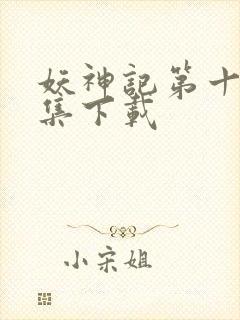 妖神記第十
集下載
小宋姐